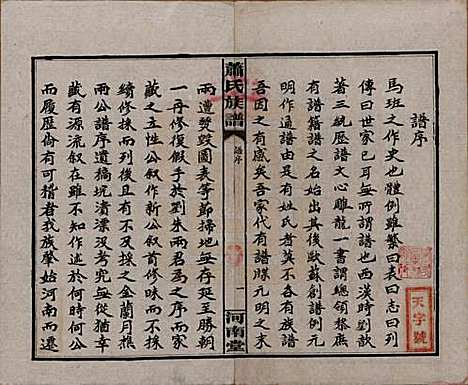 譜序
馬班之作史也體例雖繁曰表曰志曰列
傳曰世家已耳無所謂譜也西漢時劉歆
著三統歷譜文心雕龍一書謂總領黎庶
有譜籍譜之名始出其後歐蘇創譜例元
明作通譜由是有姓氏者莫不各有族譜
吾因之有感矣吾家代有譜牒元明之末
蕭氏族譜
譜序
一
河南堂
兩遭燹毀圖表等節掃地無存延至勝朝
一再修復假手於劉朱兩君爲之序而家
藏之五性公叙作新公叙首修昧而不彰
續修採而列之不可謂非採之金蘭月樵
兩公譜序遺稿坑漬漂没考究無已此猶幸
藏有源流叙在不知作述於何時何人
而履歷尚有可稽者我族肇始河南而遷
天字號